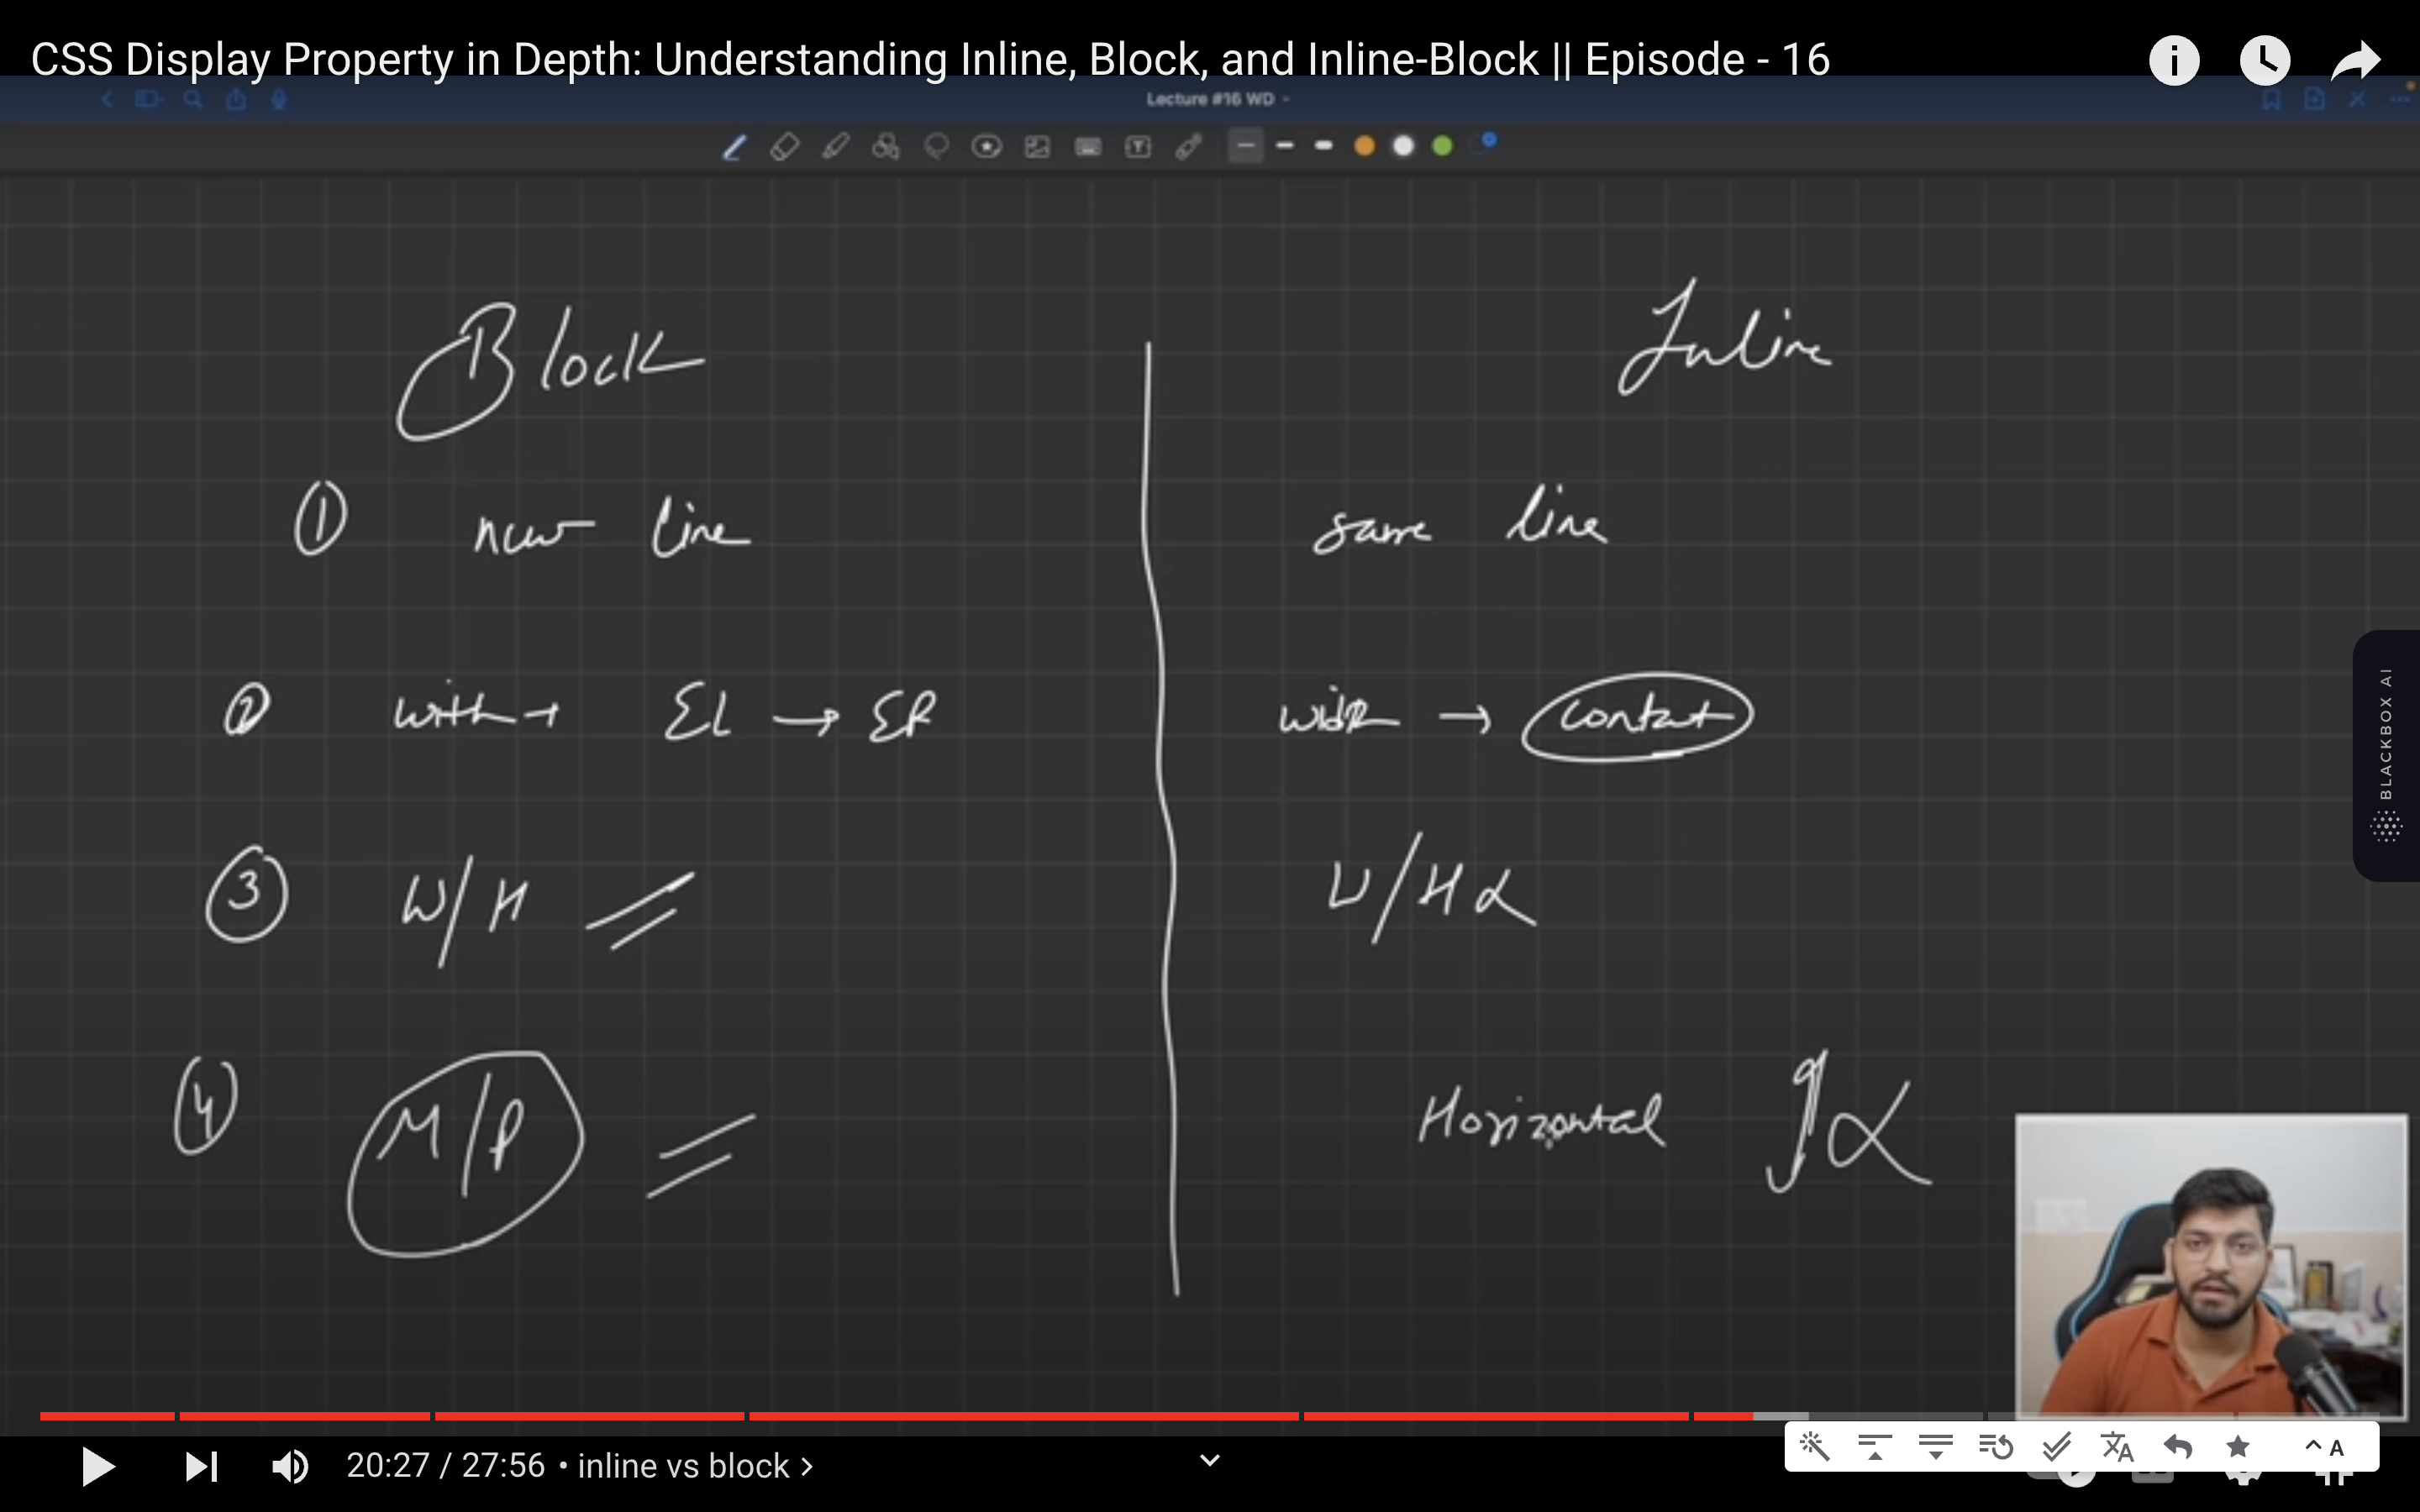 CSS Display Property in Depth: Understanding Inline, Block, and Inline-Block || Episode - 16
Lecture #16 WD
Block
Inline
① new line
same line
② with → EL → ER
width → content
③ W/H
W/H
④ M/P
Horizontal
BLACKBOX AI
20:27 / 27:56 • inline vs block >
A